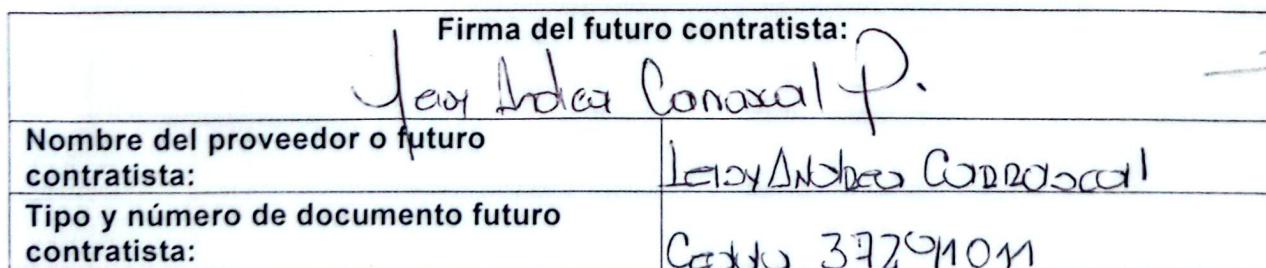 Firma del futuro contratista:
Andrea Carrascal P.
Nombre del proveedor o futuro
contratista:
Leidy Andrea Carrascal
Tipo y número de documento futuro
contratista: